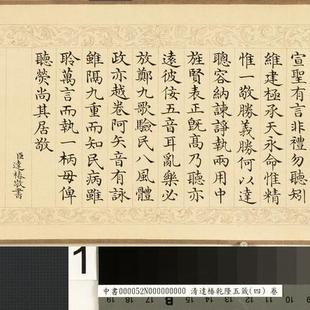 宣聖有言非禮勿聽矧
維建極承天永命惟精
惟一敬勝義勝何以達
聰容納諫諍執兩用中
旌賢表正既高乃聽亦
遠彼佞五音耳亂樂必
放鄭九歌驗民八風體
政亦越卷阿矢音有詠
雖隔九重而知民病雖
聆萬言而執一柄毋俾
聽熒尚其居敬
臣達椿敬書
1
中書000052N000000000 清達椿乾隆五箴(四) 卷